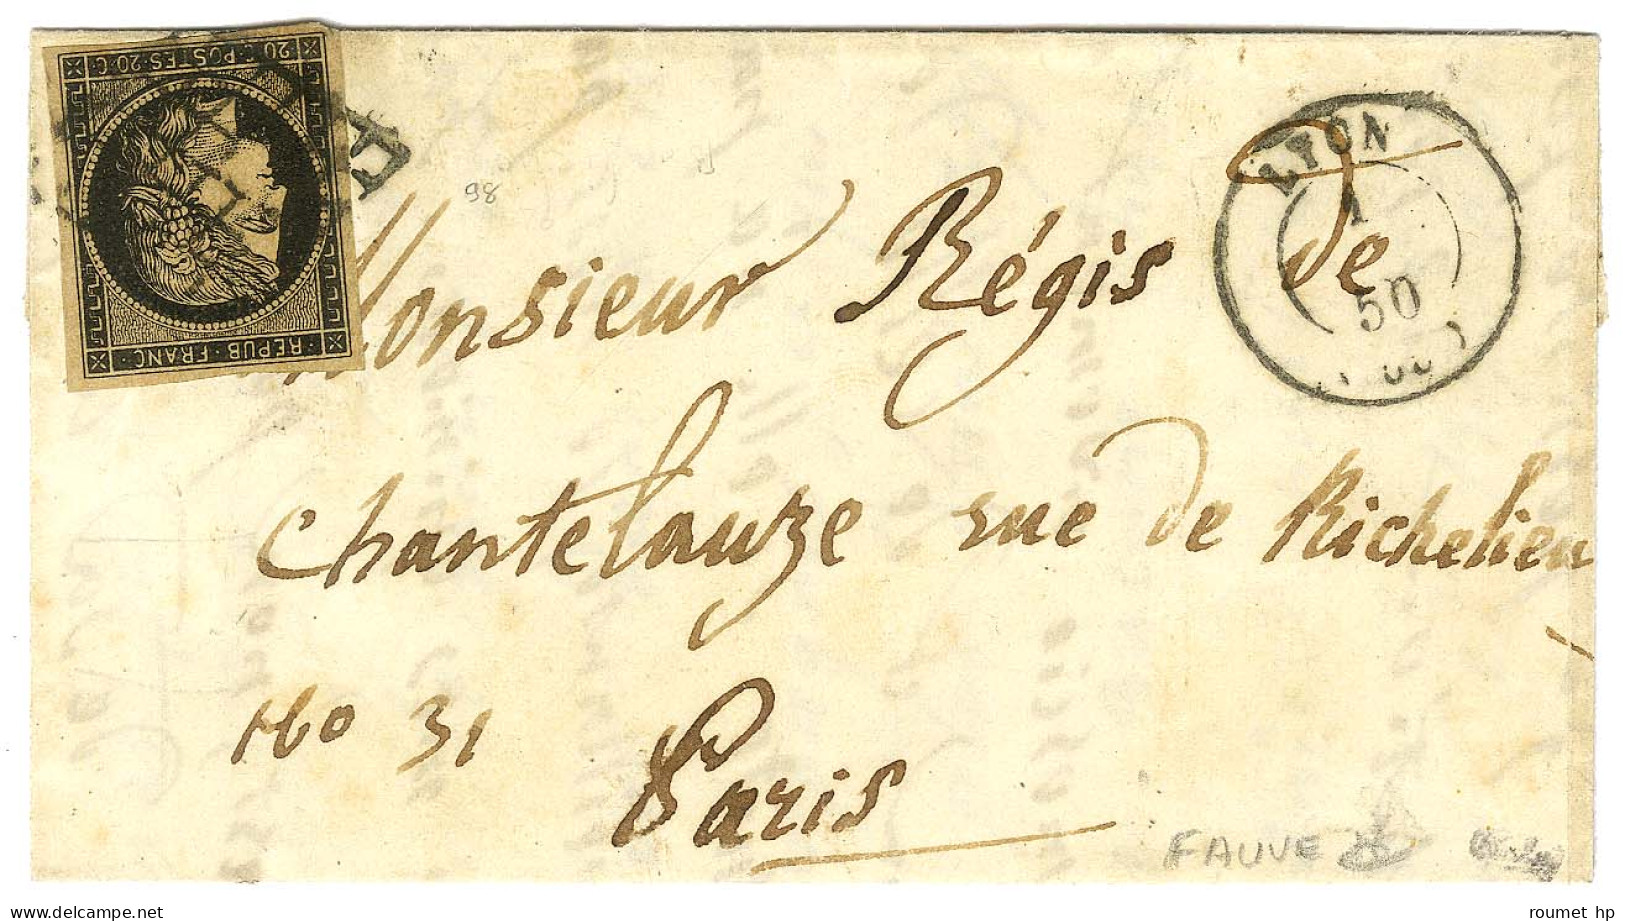 20 C · POSTES · 20 C
REPUB · FRANC
LYON
1
50
98
Monsieur Régis de
Chantelauze rue de Richelieu
No 31
Paris
FAUVE
roumet hp